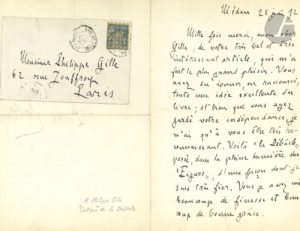 Monsieur Philippe Gille
62 rue Jouffroy
Paris
à Philippe Gille
Médan 21 juin 92
Mille fois merci, mon cher
Gille, de votre très bel et très
intéressant article, qui m'a
fait le plus grand plaisir. Vous
avez su donner, en raccourci,
toute une idée excellente du
livre; et bien que vous ayez
gardé votre indépendance, je
n'ai qu'à vous être très re-
connaissant. Voilà "la Débâcle"
posée, dans la pleine lumière du
"Figaro", d'une façon dont je
suis très fier. Vous y avez mis
beaucoup de finesse et beau-
coup de bonne grâce.